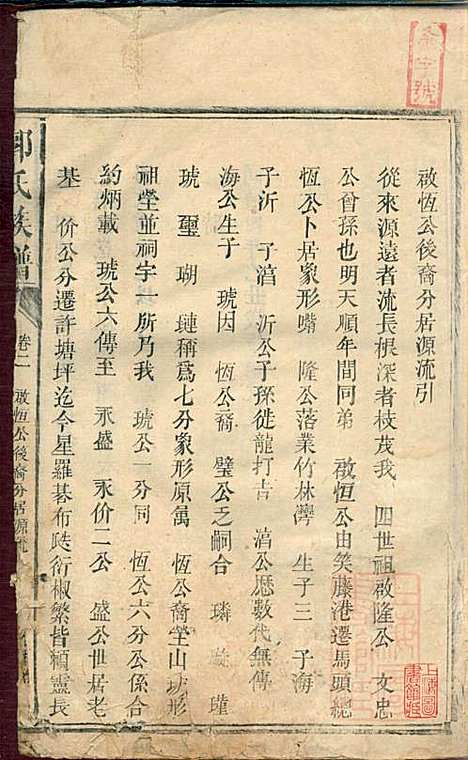 啟恆公後裔分居源流引
從來源遠者流長根深者枝茂我 四世祖啟隆公 文忠
公曾孫也明天順年間同弟 啟恆公由笑藤港遷馬頭總
恆公卜居象形嘴 隆公落業竹林灣 生子三 子海
子沂 子湻 沂公子孫徙龍打吉 湻公歷數代無傳
海公生子 琥因 恆公裔 璧公乏嗣合 璘 璇 瑾
琥 璽 瑚 璉稱爲七分象形原萬 恆公裔塋山形
祖塋並祠宇一所乃我 琥公一分同 恆公六分公係合
約炳載 琥公六傳至 永盛 永价二公 盛公世居老
基 价公分遷許塘坪迄今星羅棊布陝衍椒繁皆賴靈長
郭氏族譜
卷二 啟恆公後裔分居源流